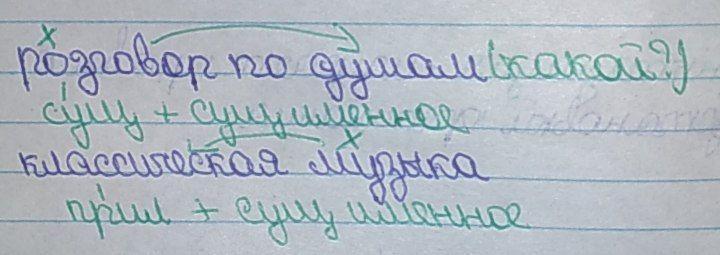 розговор по душам (какой?)
сущ + сущ именное
классическая музыка
прил + сущ именное